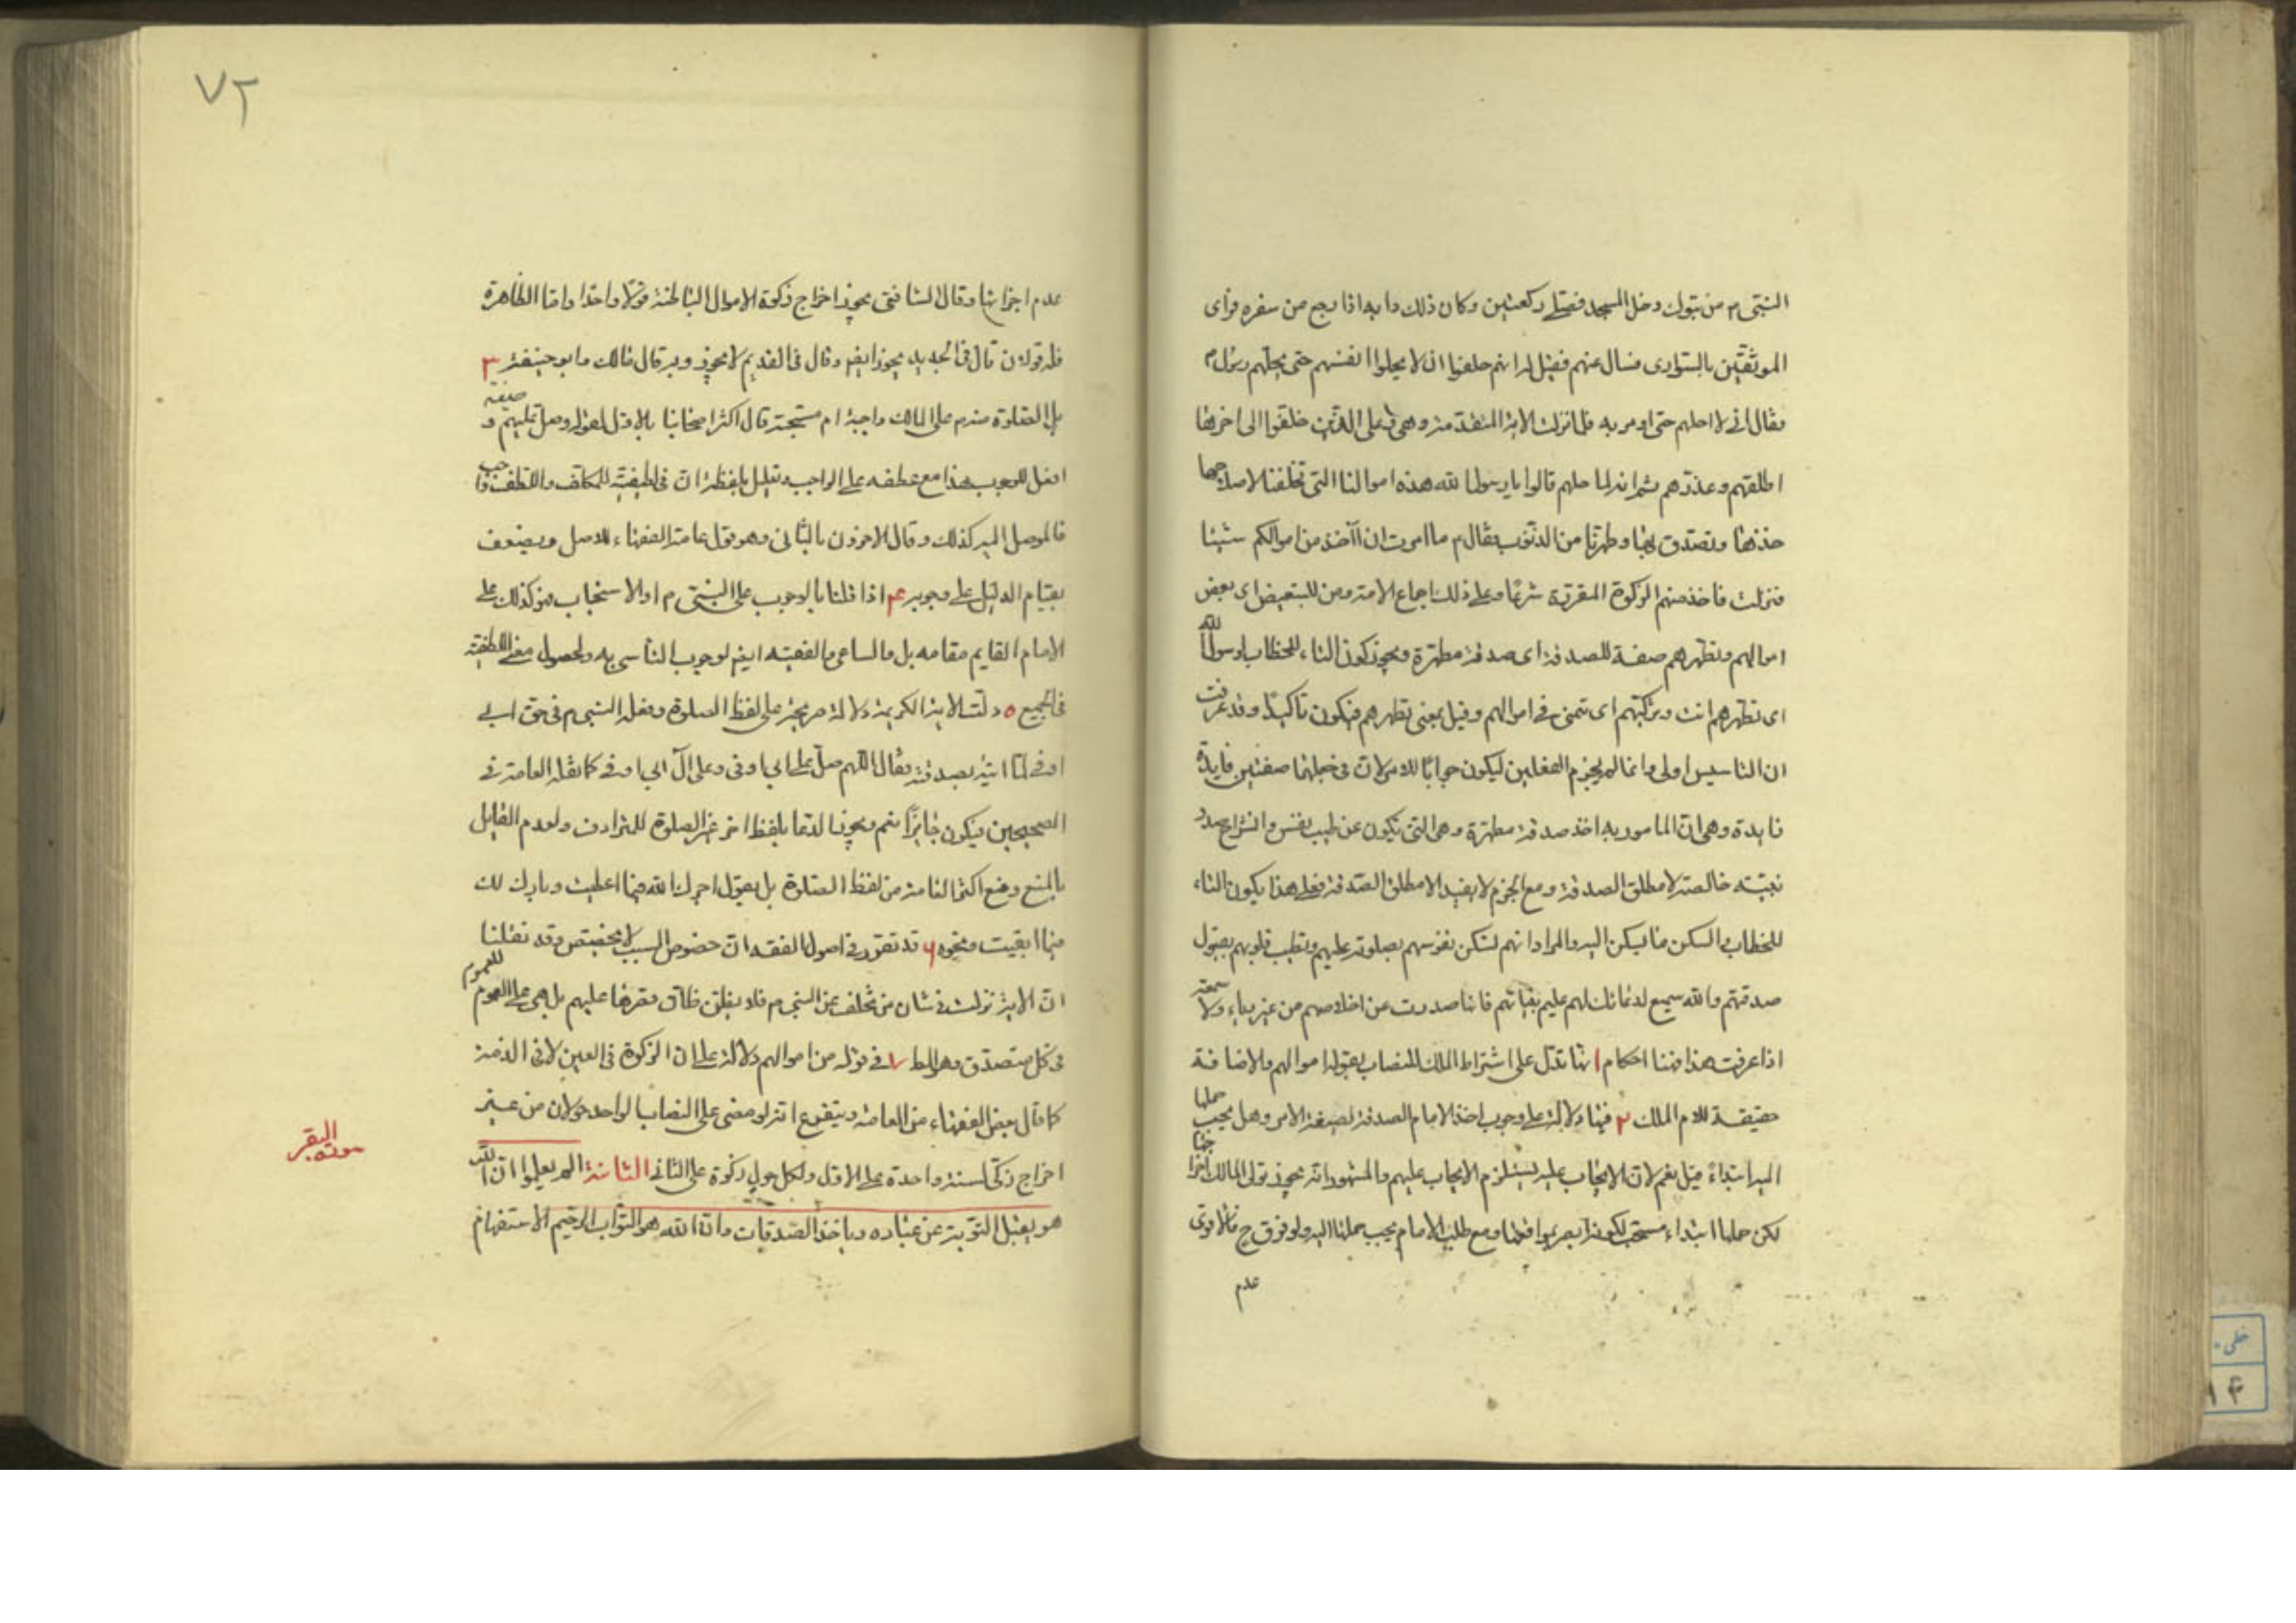 النبی م من تبوك دخل المسجد فصلی ركعتین وكان ذلك دابه اذا رجع من سفره فرأی
الموثقین بالسواری فسال عنهم فقیل له انهم حلفوا ان لا یحلوا انفسهم حتی یحلهم رسول م
فقال انی لا احلهم حتی اومر به فلما نزلت الایة المتقدمة وهی وعلی الذین خلفوا الی اخرها
اطلقهم وعذرهم ثم انه لما حلهم قالوا یا رسول الله هذه اموالنا التی تخلفنا لاصلاحها
خذها وتصدق بها وطهرنا من الذنوب فقال م ما امرت ان آخذ من اموالكم شیئا
فنزلت فاخذ منهم الزكوة المقررة شرعًا وعلی ذلك اجماع الامة ومن للتبعیض ای بعض
اموالهم وتطهرهم صفة للصدقة ای صدقة مطهرة ویجوز كون التاء للخطاب لرسول الله
ای تطهرهم انت وتزكیهم ای تنمی فی اموالهم وقیل بمعنی تطهرهم فیكون تاكیدًا وقد عرفت
ان التاسیس اولی وانما لم یجزم الفعلین لیكون جوابًا للامر لان فی جعلهما صفتین فایدة
فایدة وهی ان المامور به اخذ صدقة مطهرة وهی التی تكون عن طیب نفس وانشراح صدر
نیته خالصة لا مطلق الصدقة ومع الجزم لا یفید الا مطلق الصدقة فعلی هذا یكون التاء
للخطاب والسكن ما یسكن الیه والمراد انهم تسكن نفوسهم بصلوته علیهم وتطیب قلوبهم بقبول
صدقتهم والله سمیع لدعائك لهم علیم بنیاتهم فانها صدرت عن اخلاصهم من غیر ریاء ولا سمعة
اذا عرفت هذا فهنا احكام ١ انها تدل علی اشتراط الملك للنصاب بقوله اموالهم والاضافة
حقیقة للام الملك ٢ فیها دلالة علی وجوب اخذ الامام الصدقة لصیغة الامر وهل یجب حملها
الیه ابتداءً قیل نعم لان الایجاب علیه یستلزم الایجاب علیهم والمشهور انه یجوز تولی المالك اخراجها
لكن حملها ابتداء مستحب لكونه ابصر بمواقعها ومع طلب الامام یجب حملها الیه ولو فرق ح فالاقوی
عدم
٧٢
عدم اجزائها وقال الشافعی یجوز اخراج زكوة الاموال الباطنة قولًا واحدا واما الظاهرة
فله قولان قال فی الجدید یجوز ایضا وقال فی القدیم لا یجوز وبه قال مالك وابو حنیفة ٣
هل الصلوة منه م علی المالك واجبة ام مستحبة قال اكثر اصحابنا بالاول لقوله وصل علیهم وصیغة
افعل للوجوب هذا مع عطفه علی الواجب وتعلیل بلفظة ان فی لطفیته للمكلف واللطف واجب
فالموصل الیه كذلك وقال الاخرون بالثانی وهو قول عامة الفقهاء للاصل ویضعف
بقیام الدلیل علی وجوبه ۴ اذا قلنا بالوجوب علی النبی م او الاستحباب فهو كذلك علی
الامام القایم مقامه بل والساعی والفقیه ایضا لوجوب التاسی به ولحصول معنی اللطفیة
فی الجمیع ٥ دلت الایة الكریمة دلالة صریحة علی لفظ الصلوة وفعله النبی م فی حق ابی
اوفی لما اتیه بصدقته فقال اللهم صل علی ابی اوفی وعلی آل ابی اوفی كما نقله العامة فی
الصحیحین فیكون جایزًا نعم ویجوز الدعا بلفظ اخر غیر الصلوة للترادف ولعدم القایل
بالمنع ومنع اكثر العامة من لفظ الصلوة بل یقول اجرك الله فیما اعطیت وبارك لك
فیما ابقیت ونحوه ۶ قد تقرر فی اصول الفقه ان خصوص السبب لا یخصص وقد نقلنا
ان الایة نزلت فی شان من تخلف عن النبی م فلا یظن ظان بقصرها علیهم بل هی علی العموم
فی كل متصدق وهو المط ٧ فی قوله من اموالهم دلالة علی ان الزكوة فی العین لا فی الذمة
كما قال بعض الفقهاء من العامة ویتفرع انه لو مضی علی النصاب الواحد حولان من غیر
اخراج زكی لسنة واحدة علی الاول ولكل حول زكوة علی الثانی الثانیة الم یعلموا ان الله
هو یقبل التوبة عن عباده ویاخذ الصدقات وان الله هو التواب الرحیم الاستفهام
سورة البقر